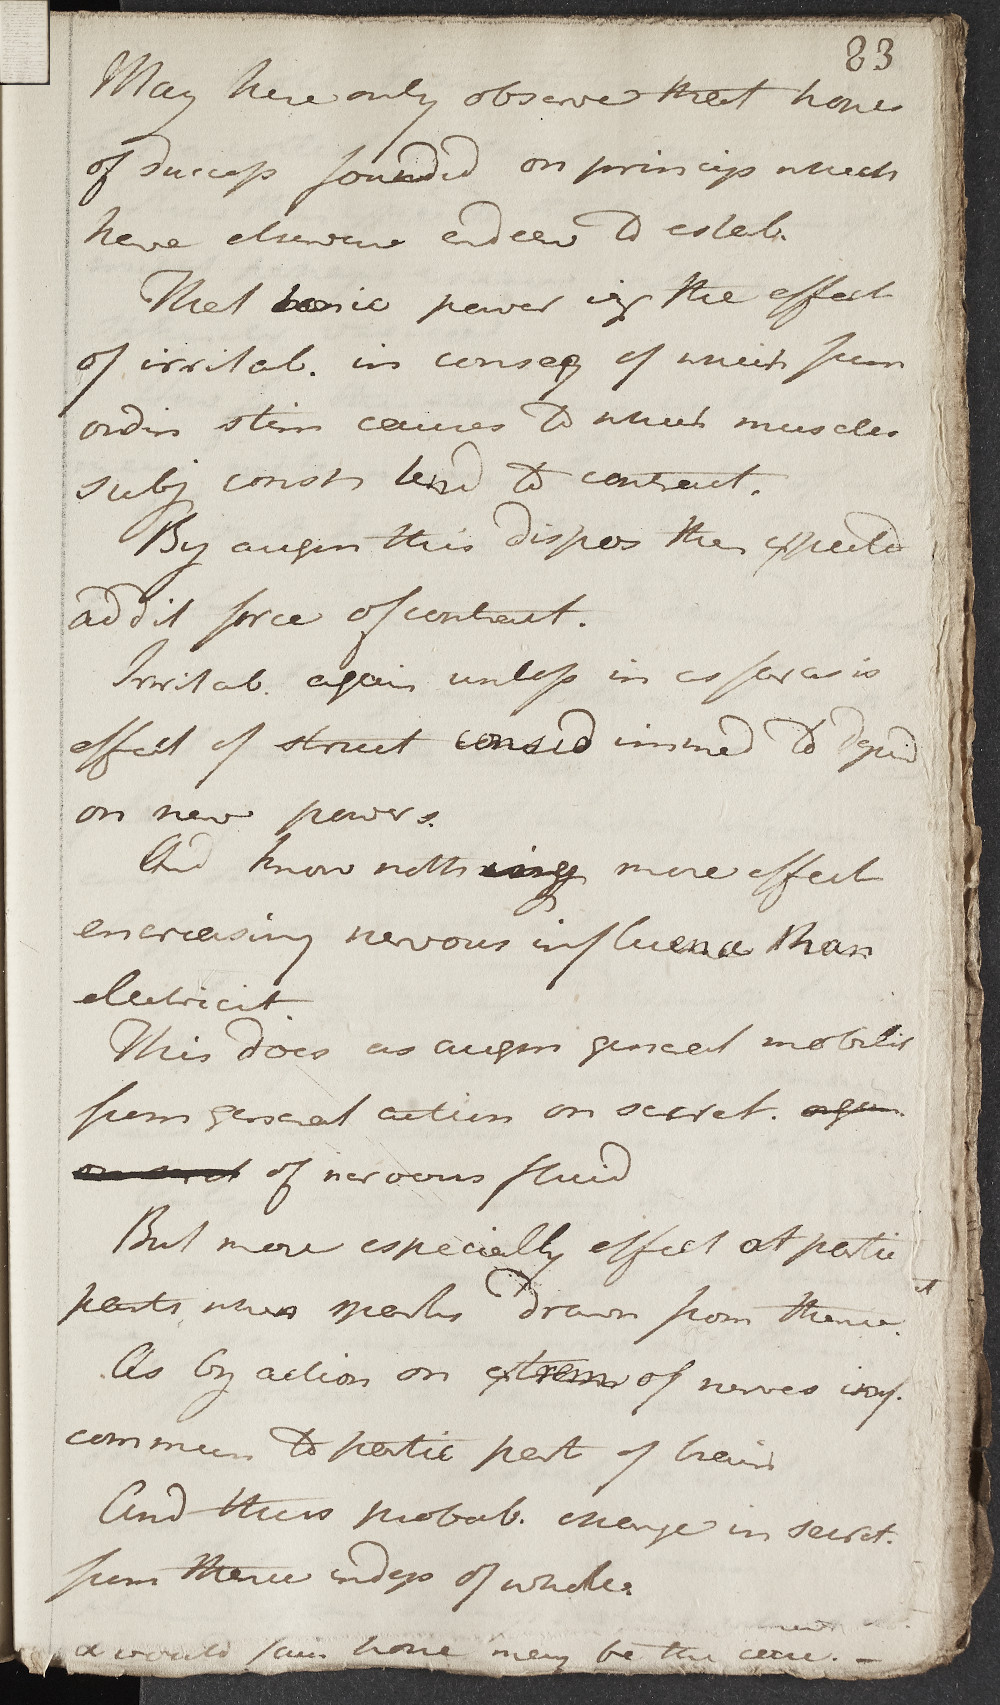 83
May here only observe that hopes
of success founded on princip which
have elsewhere endeav to estab.
That tonic power is the effect
of irritab. in conseq of which from
ordin stim causes to which muscles
subj const tend to contract.
By augm this dispos then expect
addit force of contract.
Irritab. again unless in as far as is
effect of struct consid immed to depend
on nerv powers.
And know nothing more effect
encreasing nervous influence than
electricit.
This does as augm general mobilit
from general action on secret. organ
on secret of nervous fluid
But more especially effect at partic
parts, when sparks drawn from thence.
As by action on extrem of nerves
commun to partic part of brain
And thus probab. change in secret.
from thence indep of whole.
would fain hope may be the case. –